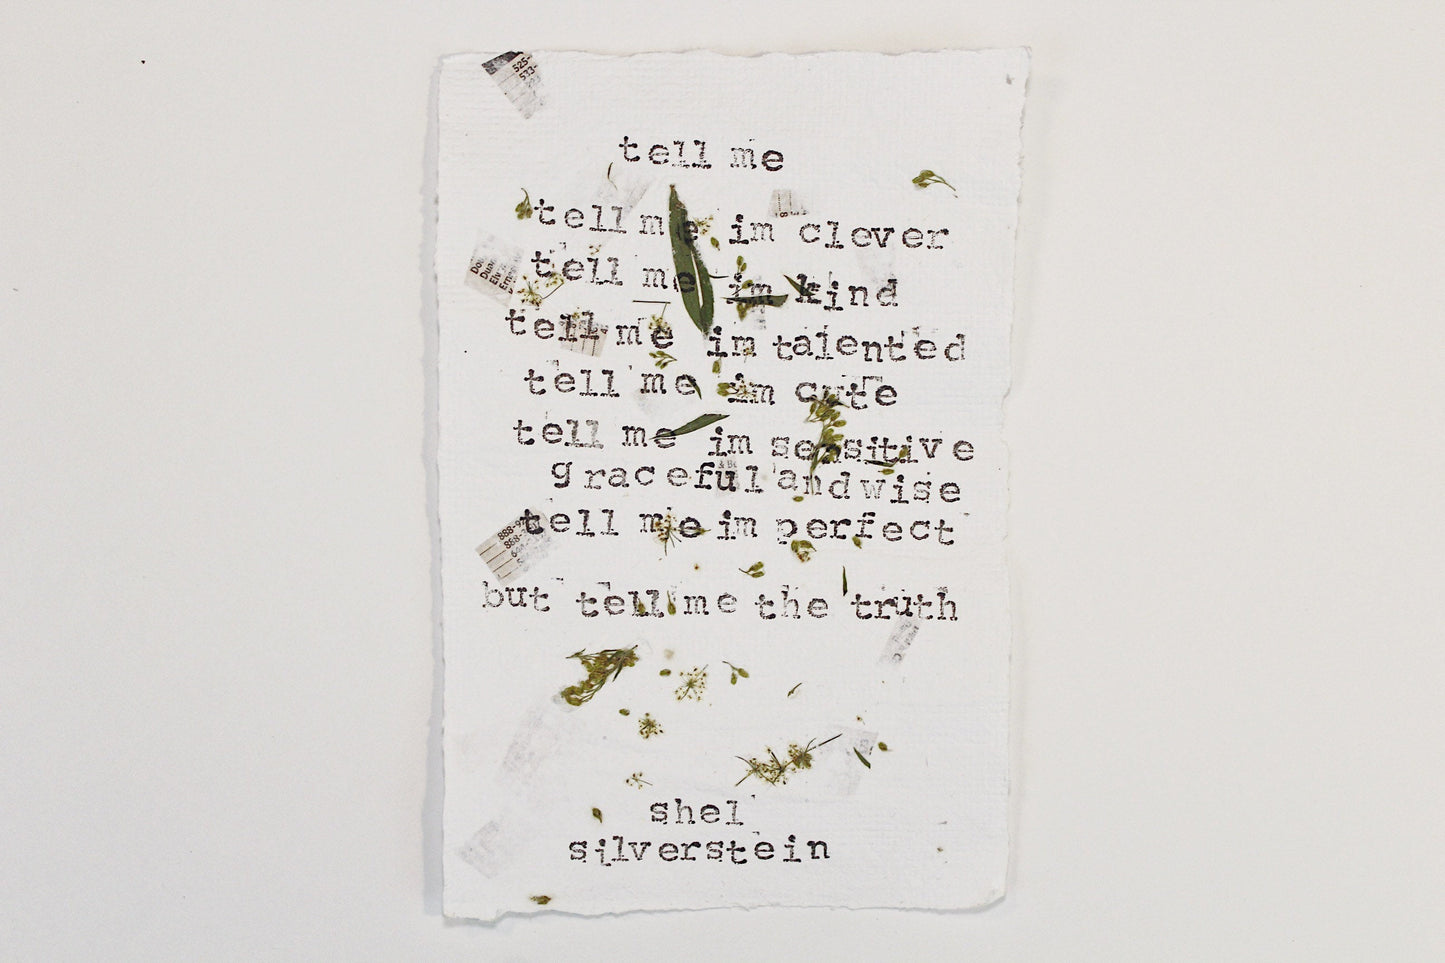 525-
513-
tell me
tell me im clever
tell me im kind
tell me im talented
tell me im cute
tell me im sensitive
graceful and wise
tell me im perfect
but tell me the truth
shel
silverstein